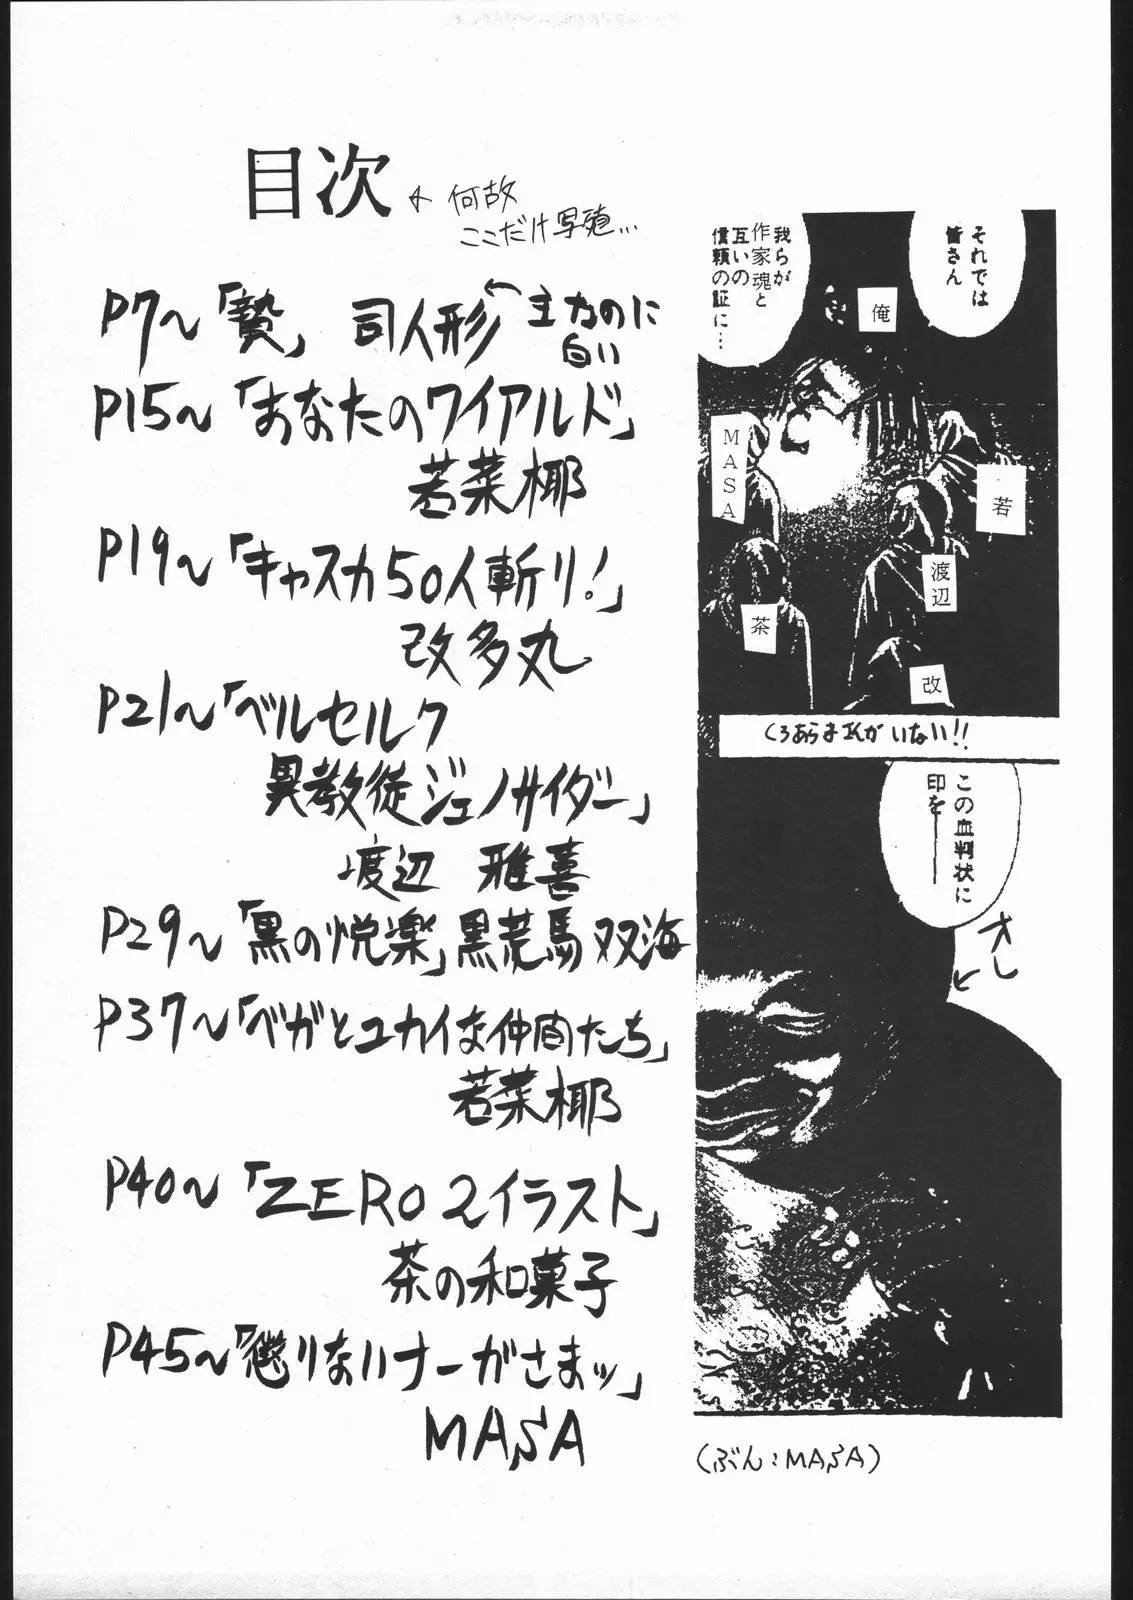 目次
何故
ここだけ写殖…
P7〜「贄」 司人形 ←主なのに
白い
P15〜「あなたのワイアルド」
若菜椰
P19〜「キャスカ50人斬り!」
改多丸
P21〜「ベルセルク
異教徒ジェノサイダー」
渡辺 雅喜
P29〜「黒の悦楽」黒荒馬双海
P37〜「ベガとユカイな仲間たち」
若菜椰
P40〜「ZERO2イラスト」
茶の和菓子
P45〜「懲りないナーガさまッ」
MASA
それでは
皆さん
我らが
作家魂と
互いの
信頼の証に…
俺
MASA
若
渡辺
茶
改
くろあらまはんがいない!!
この血判状に
印を──
オレ
(ぶん:MASA)